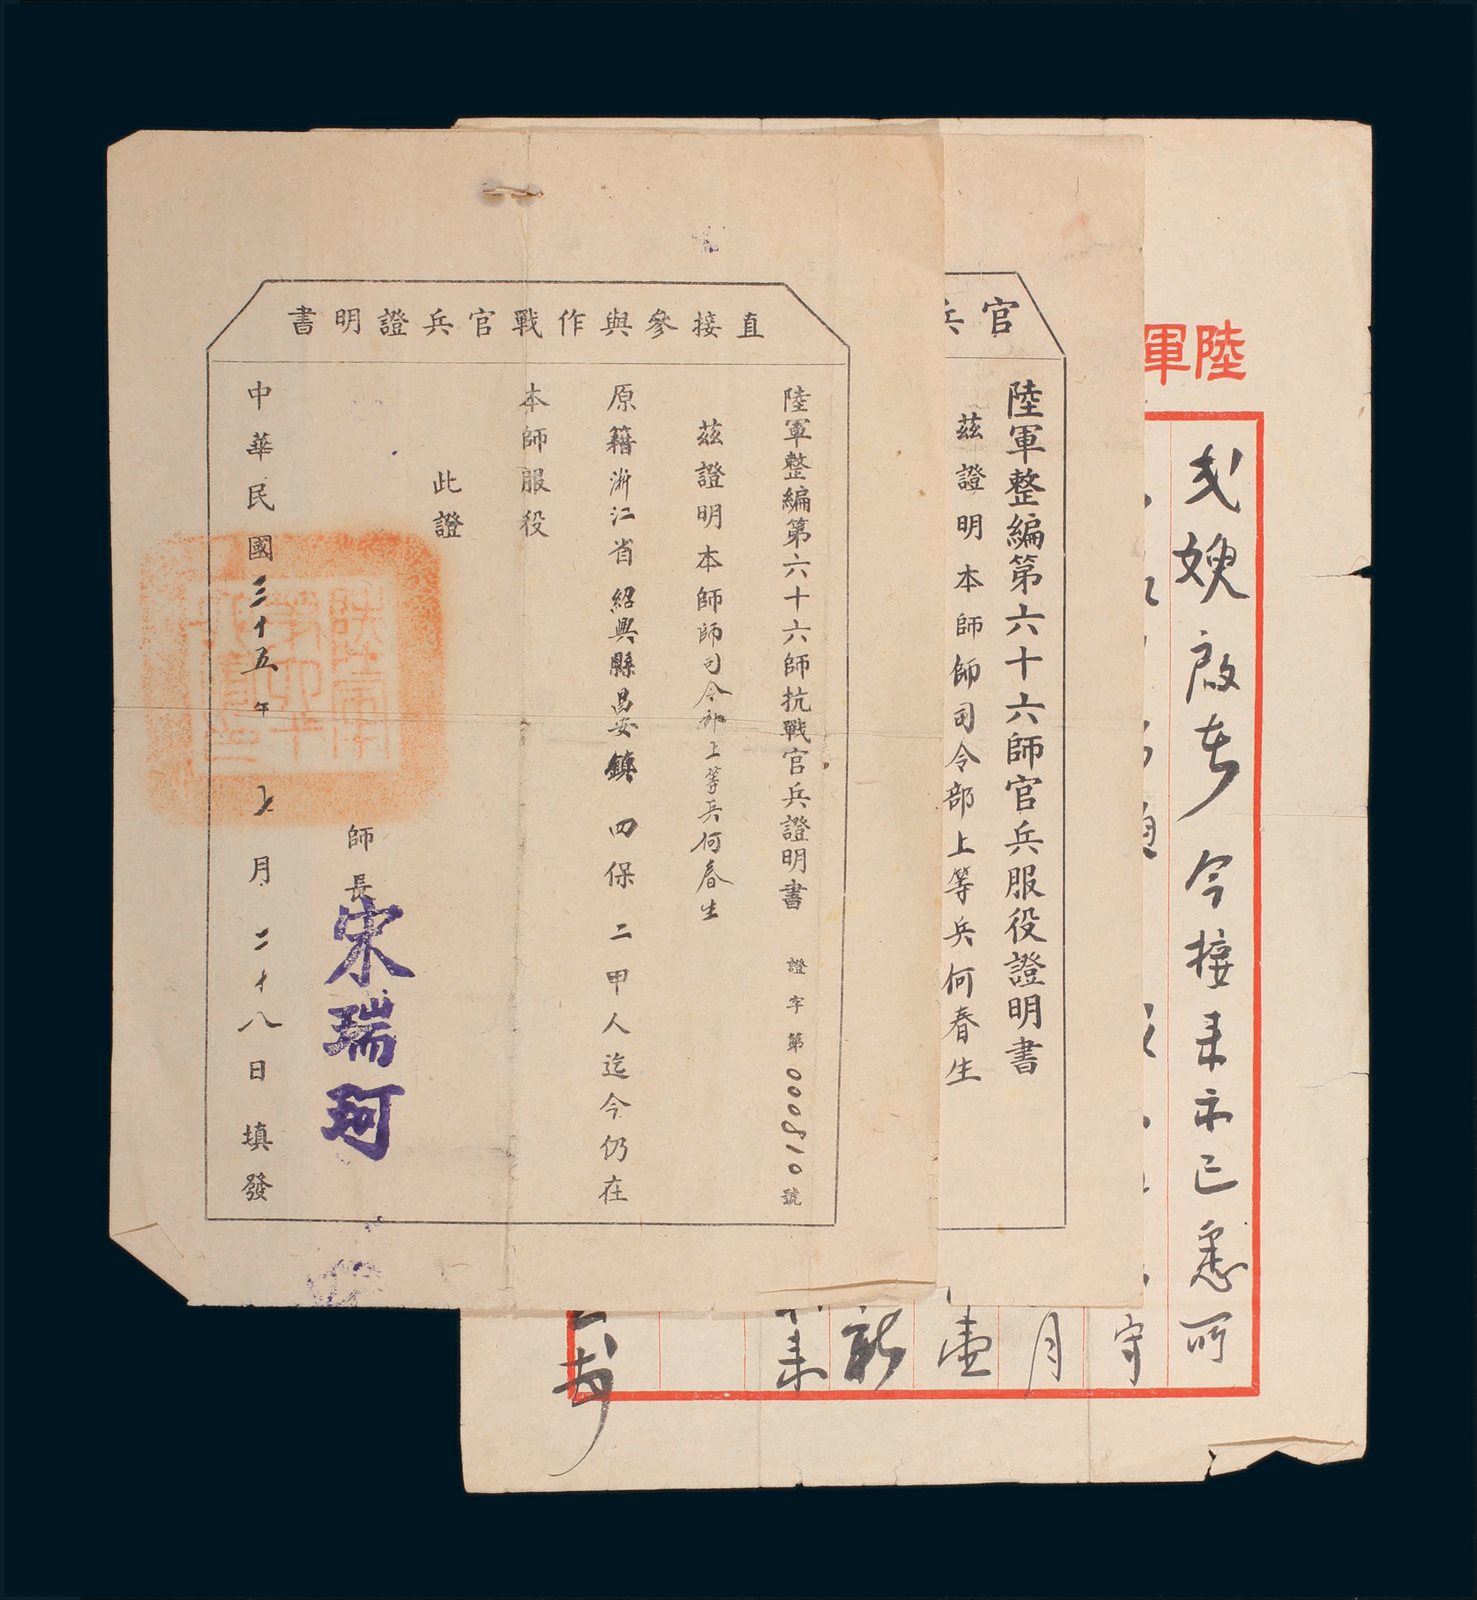 直接參與作戰官兵證明書
陸軍整編第六十六師抗戰官兵證明書 證字第000810號
茲證明本師師司令部上等兵何春生
原籍浙江省紹興縣昌安鎮四保二甲人迄今仍在
本師服役
此證
師長宋瑞珂
中華民國三十五年七月二十八日填發
官兵
陸軍整編第六十六師官兵服役證明書
茲證明本師師司令部上等兵何春生
陸軍
嫂啟者今接來示已悉所
守
月
壺
新
來